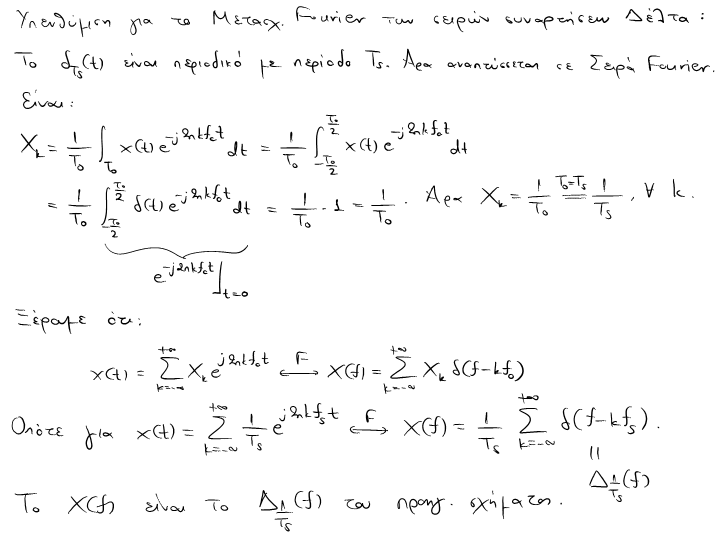 Υπενθύμιση για το Μετασχ. Fourier των σειρών συναρτήσεων Δέλτα:
Το δ_{T_s}(t) είναι περιοδικό με περίοδο T_s. Άρα αναπτύσσεται σε Σειρά Fourier.
Είναι:
X_k = \frac{1}{T_0} \int_{T_0} x(t) e^{-j2πkf_0t} dt = \frac{1}{T_0} \int_{-\frac{T_0}{2}}^{\frac{T_0}{2}} x(t) e^{-j2πkf_0t} dt
= \frac{1}{T_0} \int_{-\frac{T_0}{2}}^{\frac{T_0}{2}} δ(t) e^{-j2πkf_0t} dt = \frac{1}{T_0} · 1 = \frac{1}{T_0}. Άρα X_k = \frac{1}{T_0} \overset{T_0=T_s}{=} \frac{1}{T_s}, ∀ k.
e^{-j2πkf_0t} |_{t=0}
Ξέραμε ότι:
x(t) = \sum_{k=-∞}^{+∞} X_k e^{j2πkf_0t} \overset{F}{⟷} X(f) = \sum_{k=-∞}^{+∞} X_k δ(f-kf_0)
Οπότε για x(t) = \sum_{k=-∞}^{+∞} \frac{1}{T_s} e^{j2πkf_st} \overset{F}{⟷} X(f) = \frac{1}{T_s} \sum_{k=-∞}^{+∞} δ(f-kf_s).
=
Δ_{\frac{1}{T_s}}(f)
Το X(f) είναι το Δ_{\frac{1}{T_s}}(f) του προηγ. σχήματος.